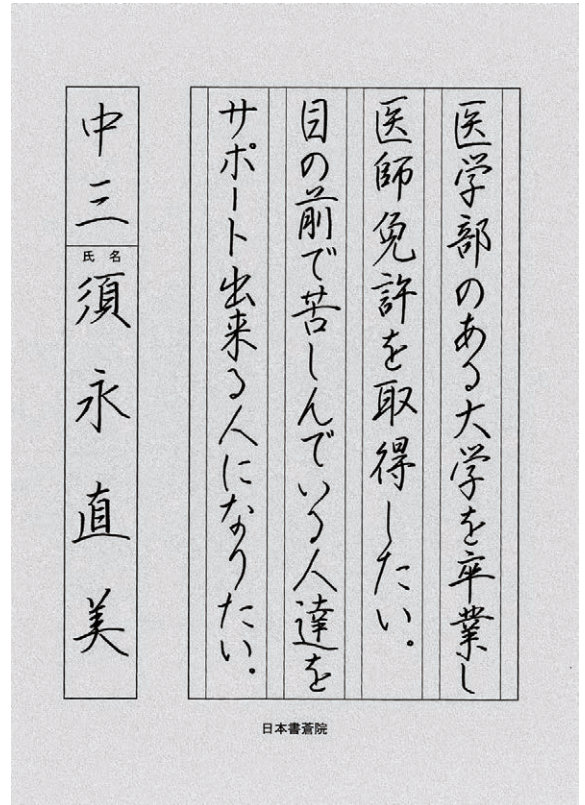 医学部のある大学を卒業し
医師免許を取得したい。
目の前で苦しんでいる人達を
サポート出来る人になりたい。
中三
氏名
須永直美
日本書蒼院